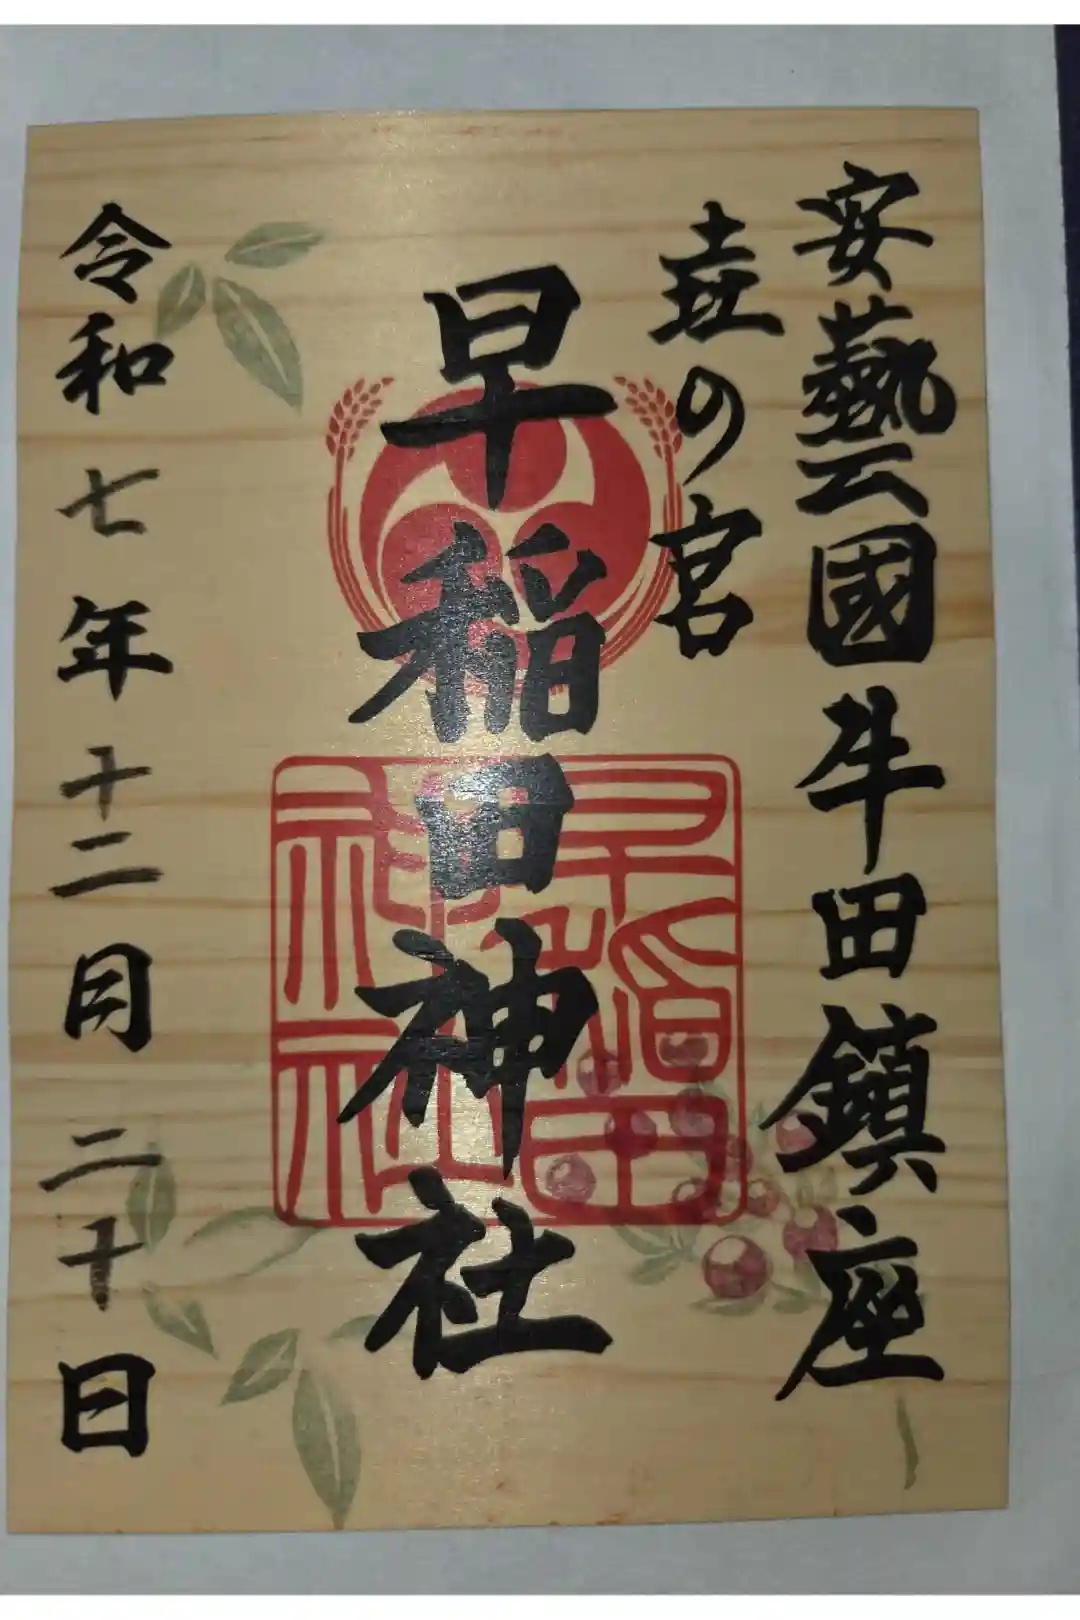 安藝國牛田鎮座
壷の宮
早稲田神社
早稲田神社
令和七年十二月二十日